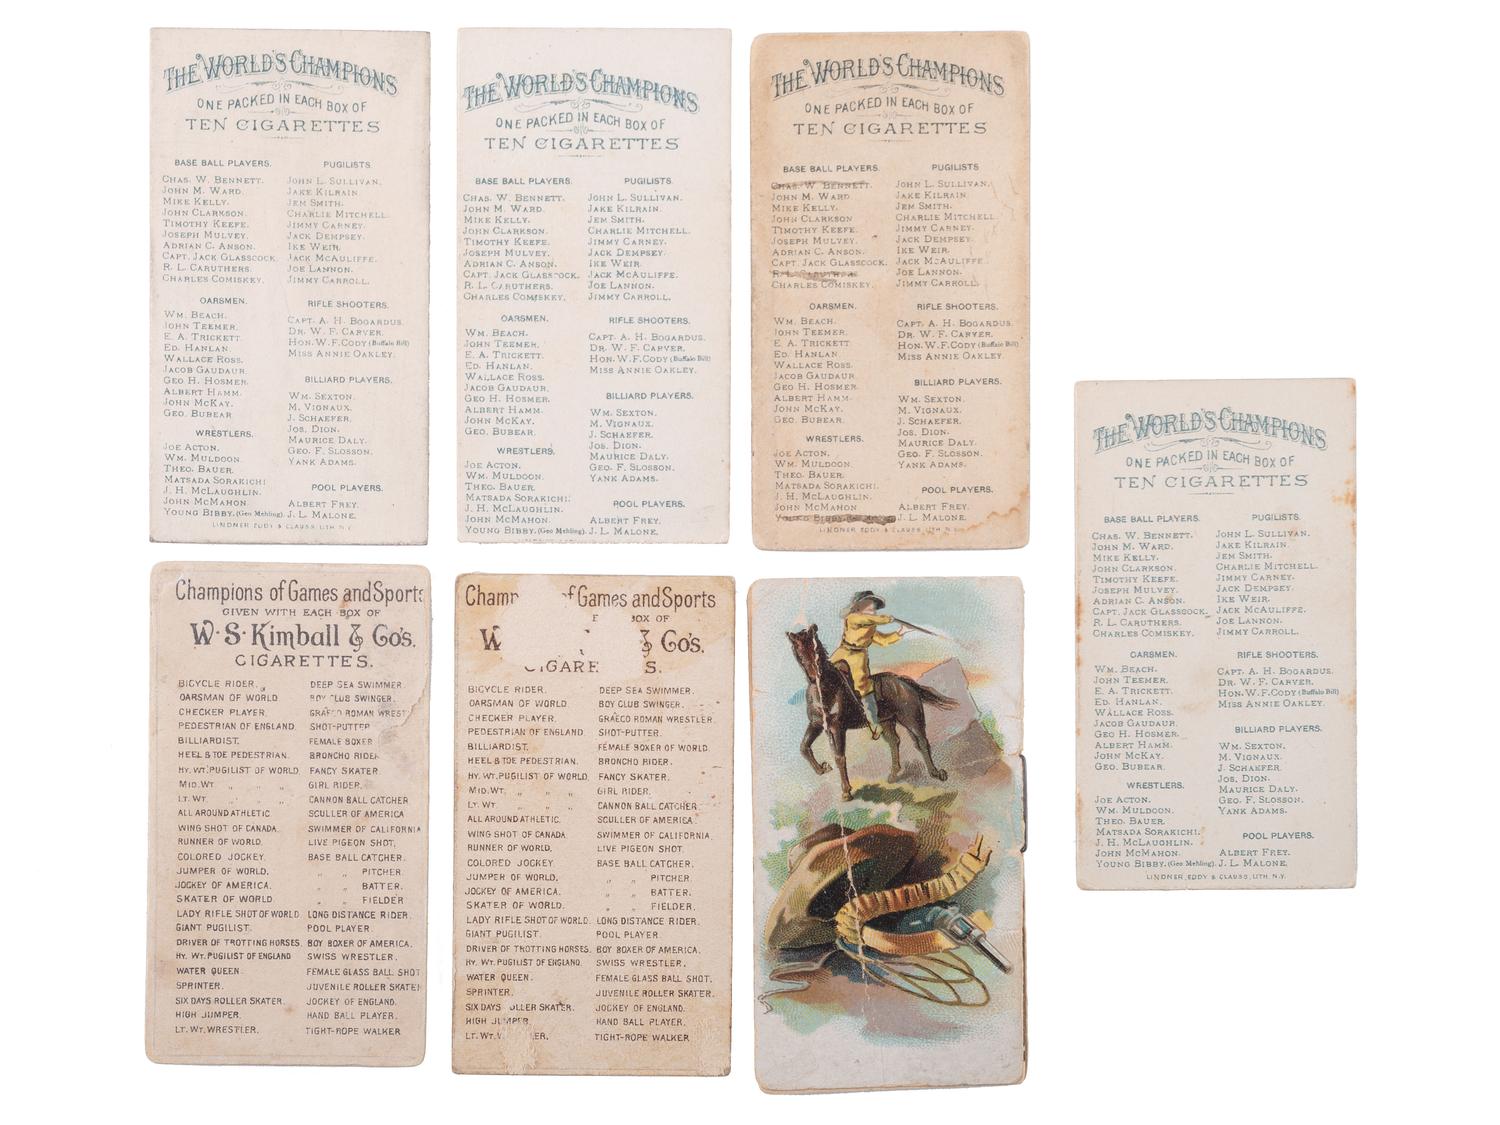 THE WORLD'S CHAMPIONS
ONE PACKED IN EACH BOX OF
TEN CIGARETTES
BASE BALL PLAYERS.
CHAS. W. BENNETT.
JOHN M. WARD.
MIKE KELLY.
JOHN CLARKSON.
TIMOTHY KEEFE.
JOSEPH MULVEY.
ADRIAN C. ANSON.
CAPT. JACK GLASSCOCK.
R. L. CARUTHERS.
CHARLES COMISKEY.
OARSMEN.
WM. BEACH.
JOHN TEEMER.
E. A. TRICKETT.
ED. HANLAN.
WALLACE ROSS.
JACOB GAUDAUR.
GEO H. HOSMER.
ALBERT HAMM.
JOHN MCKAY.
GEO. BUBEAR
WRESTLERS.
JOE ACTON.
WM. MULDOON.
THEO. BAUER.
MATSADA SORAKICHI
J. H. MCLAUGHLIN.
JOHN MCMAHON
YOUNG BIBBY. (Geo Mehling).
PUGILISTS.
JOHN L. SULLIVAN.
JAKE KILRAIN.
JEM SMITH.
CHARLIE MITCHELL.
JIMMY CARNEY.
JACK DEMPSEY.
IKE WEIR.
JACK MCAULIFFE.
JOE LANNON.
JIMMY CARROLL.
RIFLE SHOOTERS.
CAPT. A. H. BOGARDUS.
DR. W. F. CARVER.
HON. W. F. CODY (Buffalo Bill)
MISS ANNIE OAKLEY.
BILLIARD PLAYERS.
WM. SEXTON.
M. VIGNAUX.
J. SCHAEFER.
JOS. DION.
MAURICE DALY.
GEO. F. SLOSSON.
YANK ADAMS.
POOL PLAYERS.
ALBERT FREY.
J. L. MALONE.
LINDNER, EDDY & CLAUSS, LITH. N.Y.
THE WORLD'S CHAMPIONS
ONE PACKED IN EACH BOX OF
TEN CIGARETTES
BASE BALL PLAYERS.
CHAS. W. BENNETT.
JOHN M. WARD.
MIKE KELLY.
JOHN CLARKSON.
TIMOTHY KEEFE.
JOSEPH MULVEY.
ADRIAN C. ANSON.
CAPT. JACK GLASSCOCK.
R. L. CARUTHERS.
CHARLES COMISKEY.
OARSMEN.
WM. BEACH.
JOHN TEEMER.
E. A. TRICKETT.
ED. HANLAN.
WALLACE ROSS.
JACOB GAUDAUR.
GEO H. HOSMER.
ALBERT HAMM.
JOHN MCKAY.
GEO. BUBEAR.
WRESTLERS.
JOE ACTON.
WM. MULDOON.
THEO. BAUER.
MATSADA SORAKICHI.
J. H. MCLAUGHLIN.
JOHN MCMAHON.
YOUNG BIBBY. (Geo Mehling).
PUGILISTS.
JOHN L. SULLIVAN.
JAKE KILRAIN.
JEM SMITH.
CHARLIE MITCHELL.
JIMMY CARNEY.
JACK DEMPSEY.
IKE WEIR.
JACK MCAULIFFE.
JOE LANNON.
JIMMY CARROLL.
RIFLE SHOOTERS.
CAPT. A. H. BOGARDUS.
DR. W. F. CARVER.
HON. W. F. CODY (Buffalo Bill)
MISS ANNIE OAKLEY.
BILLIARD PLAYERS.
WM. SEXTON.
M. VIGNAUX.
J. SCHAEFER.
JOS. DION.
MAURICE DALY.
GEO. F. SLOSSON.
YANK ADAMS.
POOL PLAYERS.
ALBERT FREY.
J. L. MALONE.
THE WORLD'S CHAMPIONS
ONE PACKED IN EACH BOX OF
TEN CIGARETTES
BASE BALL PLAYERS.
CHAS. W. BENNETT.
JOHN M. WARD
MIKE KELLY.
JOHN CLARKSON
TIMOTHY KEEFE.
JOSEPH MULVEY.
ADRIAN C. ANSON.
CAPT. JACK GLASSCOCK.
R. L. CARUTHERS
CHARLES COMISKEY.
OARSMEN.
WM. BEACH.
JOHN TEEMER.
E. A. TRICKETT.
ED. HANLAN
WALLACE ROSS.
JACOB GAUDAUR.
GEO H. HOSMER.
ALBERT HAMM.
JOHN MCKAY.
GEO. BUBEAR.
WRESTLERS.
JOE ACTON.
WM. MULDOON
THEO. BAUER.
MATSADA SORAKICHI
J. H. MCLAUGHLIN.
JOHN MCMAHON
YOUNG BIBBY
PUGILISTS
JOHN L. SULLIVAN.
JAKE KILRAIN.
JEM SMITH.
CHARLIE MITCHELL.
JIMMY CARNEY.
JACK DEMPSEY.
IKE WEIR.
JACK MCAULIFFE.
JOE LANNON.
JIMMY CARROLL.
RIFLE SHOOTERS.
CAPT. A. H. BOGARDUS
DR. W. F. CARVER.
HON. W. F. CODY (Buffalo Bill)
MISS ANNIE OAKLEY.
BILLIARD PLAYERS.
WM. SEXTON.
M. VIGNAUX.
J. SCHAEFER.
JOS. DION.
MAURICE DALY.
GEO. F. SLOSSON.
YANK ADAMS.
POOL PLAYERS.
ALBERT FREY.
J. L. MALONE.
LINDNER, EDDY & CLAUSS, LITH. N.Y.
THE WORLD'S CHAMPIONS
ONE PACKED IN EACH BOX OF
TEN CIGARETTES
BASE BALL PLAYERS.
CHAS. W. BENNETT.
JOHN M. WARD.
MIKE KELLY.
JOHN CLARKSON.
TIMOTHY KEEFE.
JOSEPH MULVEY.
ADRIAN C. ANSON.
CAPT. JACK GLASSCOCK.
R. L. CARUTHERS.
CHARLES COMISKEY.
OARSMEN.
WM. BEACH.
JOHN TEEMER.
E. A. TRICKETT.
ED. HANLAN.
WALLACE ROSS.
JACOB GAUDAUR.
GEO H. HOSMER.
ALBERT HAMM.
JOHN MCKAY.
GEO. BUBEAR.
WRESTLERS.
JOE ACTON.
WM. MULDOON.
THEO. BAUER.
MATSADA SORAKICHI.
J. H. MCLAUGHLIN.
JOHN MCMAHON.
YOUNG BIBBY. (Geo Mehling).
PUGILISTS.
JOHN L. SULLIVAN.
JAKE KILRAIN.
JEM SMITH.
CHARLIE MITCHELL.
JIMMY CARNEY.
JACK DEMPSEY.
IKE WEIR.
JACK MCAULIFFE.
JOE LANNON.
JIMMY CARROLL.
RIFLE SHOOTERS.
CAPT. A. H. BOGARDUS.
DR. W. F. CARVER.
HON. W. F. CODY (Buffalo Bill)
MISS ANNIE OAKLEY.
BILLIARD PLAYERS.
WM. SEXTON.
M. VIGNAUX.
J. SCHAEFER.
JOS. DION.
MAURICE DALY.
GEO. F. SLOSSON.
YANK ADAMS.
POOL PLAYERS.
ALBERT FREY.
J. L. MALONE.
LINDNER, EDDY & CLAUSS, LITH. N.Y.
Champions of Games and Sports
GIVEN WITH EACH BOX OF
W. S. Kimball & Co's.
CIGARETTES.
BICYCLE RIDER.
OARSMAN OF WORLD
CHECKER PLAYER.
PEDESTRIAN OF ENGLAND.
BILLIARDIST.
HEEL & TOE PEDESTRIAN.
HY. WT. PUGILIST OF WORLD
MID. WT. " " "
LT. WT. " " "
ALL AROUND ATHLETIC
WING SHOT OF CANADA.
RUNNER OF WORLD.
COLORED JOCKEY.
JUMPER OF WORLD.
JOCKEY OF AMERICA.
SKATER OF WORLD
LADY RIFLE SHOT OF WORLD
GIANT PUGILIST.
DRIVER OF TROTTING HORSES.
HY. WT. PUGILIST OF ENGLAND
WATER QUEEN.
SPRINTER.
SIX DAYS ROLLER SKATER.
HIGH JUMPER.
LT. WT. WRESTLER.
DEEP SEA SWIMMER.
BOY CLUB SWINGER.
GRAECO ROMAN WREST
SHOT-PUTTER
FEMALE BOXER
BRONCHO RIDER
FANCY SKATER.
GIRL RIDER.
CANNON BALL CATCHER
SCULLER OF AMERICA
SWIMMER OF CALIFORNIA
LIVE PIGEON SHOT.
BASE BALL CATCHER.
" " PITCHER.
" " BATTER.
" " FIELDER
LONG DISTANCE RIDER.
POOL PLAYER.
BOY BOXER OF AMERICA.
SWISS WRESTLER.
FEMALE GLASS BALL SHOT
JUVENILE ROLLER SKATER
JOCKEY OF ENGLAND.
HAND BALL PLAYER.
TIGHT-ROPE WALKER
Champ of Games and Sports
E BOX OF
W & Co's.
CIGARE S.
BICYCLE RIDER.
OARSMAN OF WORLD.
CHECKER PLAYER.
PEDESTRIAN OF ENGLAND.
BILLIARDIST.
HEEL & TOE PEDESTRIAN.
HY. WT. PUGILIST OF WORLD
MID. WT. " " "
LT. WT. " " "
ALL AROUND ATHLETIC
WING SHOT OF CANADA.
RUNNER OF WORLD.
COLORED JOCKEY.
JUMPER OF WORLD.
JOCKEY OF AMERICA.
SKATER OF WORLD.
LADY RIFLE SHOT OF WORLD.
GIANT PUGILIST.
DRIVER OF TROTTING HORSES.
HY. WT. PUGILIST OF ENGLAND.
WATER QUEEN.
SPRINTER.
SIX DAYS OLLER SKATER.
HIGH JUMPER.
LT. WT. W ER.
DEEP SEA SWIMMER.
BOY CLUB SWINGER.
GRAECO ROMAN WRESTLER
SHOT-PUTTER.
FEMALE BOXER OF WORLD.
BRONCHO RIDER.
FANCY SKATER.
GIRL RIDER.
CANNON BALL CATCHER
SCULLER OF AMERICA
SWIMMER OF CALIFORNIA.
LIVE PIGEON SHOT.
BASE BALL CATCHER.
" " PITCHER.
" " BATTER.
" " FIELDER.
LONG DISTANCE RIDER.
POOL PLAYER.
BOY BOXER OF AMERICA.
SWISS WRESTLER.
FEMALE GLASS BALL SHOT.
JUVENILE ROLLER SKATER.
JOCKEY OF ENGLAND.
HAND BALL PLAYER.
TIGHT-ROPE WALKER